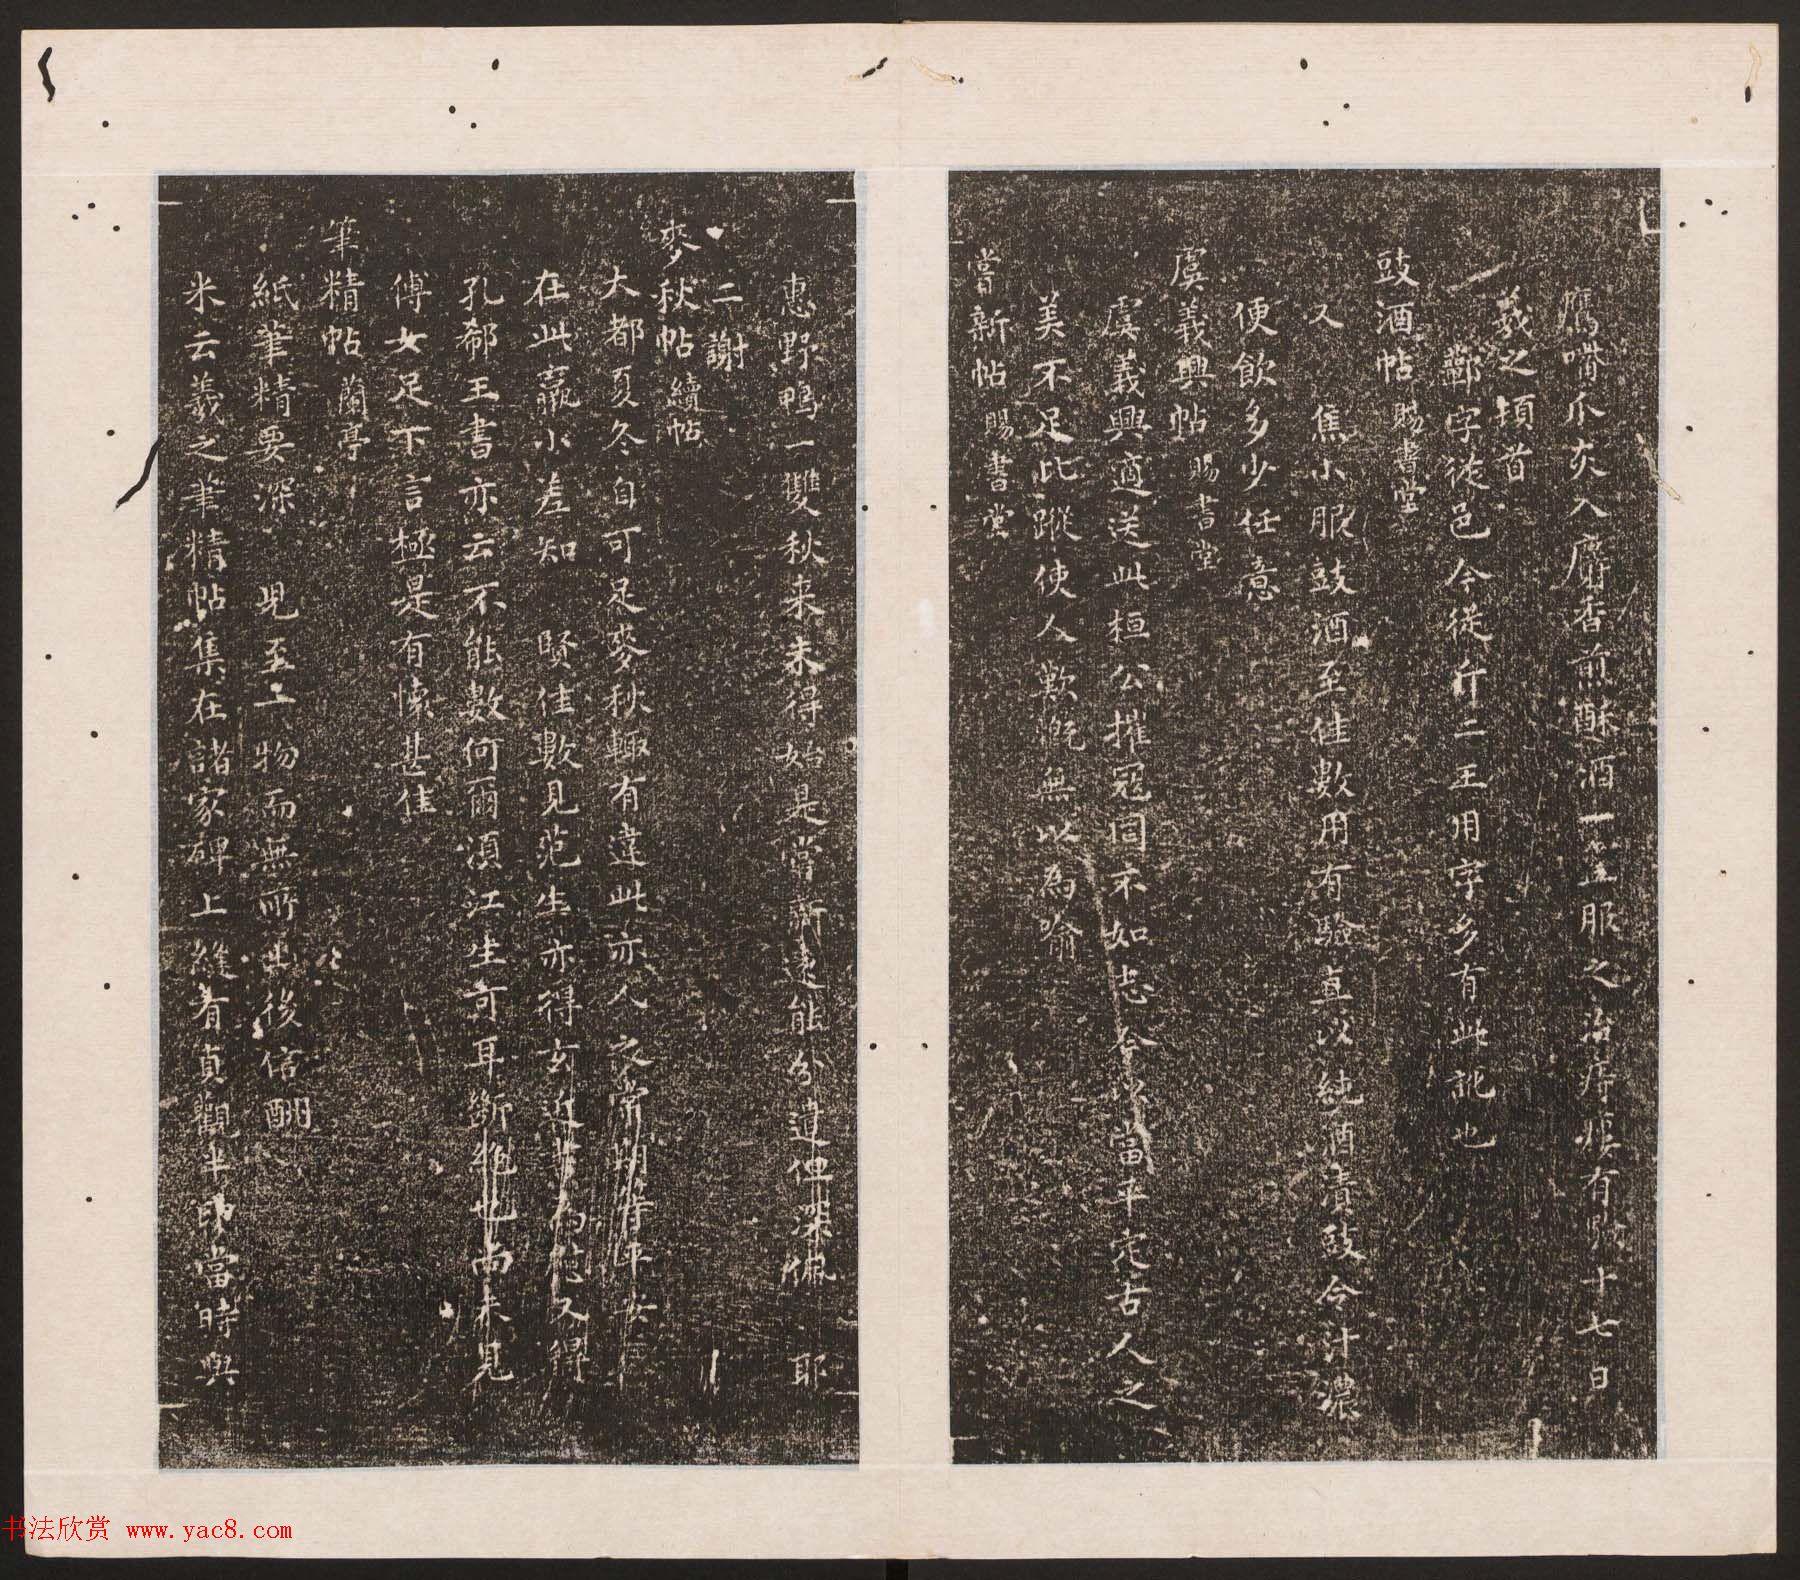 鷹嘴爪灰入麝香煎酥酒一盞服之治瘠瘻有驗十七日
羲之頓首
鄿字從邑今從斤二王用字多有此訛也
豉酒帖賜書堂
又 焦小服豉酒至佳數用有驗直以純酒漬豉令汁濃
便飲多少任意
虞義興帖賜書堂
虞義興適送此桓公摧寇罔不如志今以當平定古人之
美不足比蹤使人歎慨無以為喻
嘗新帖賜書堂
惠野鴨一雙秋來未得始是嘗新遠能分遺但深佩 耶
二謝
麥秋帖續帖
大都夏冬自可足麥秋輒有違此亦人 平安
在此羸小差知 賢佳數見范生亦得玄近 又得
孔郗王書亦云不能數何爾須江生可耳斷絕也尚未見
傅女足下言極是有懷甚佳
筆精帖蘭亭
紙筆精要深 見至二物而無所出後信酬
米云羲之筆精帖集在諸家碑上縫有貞觀半印當時與
书法欣赏 www.yac8.com